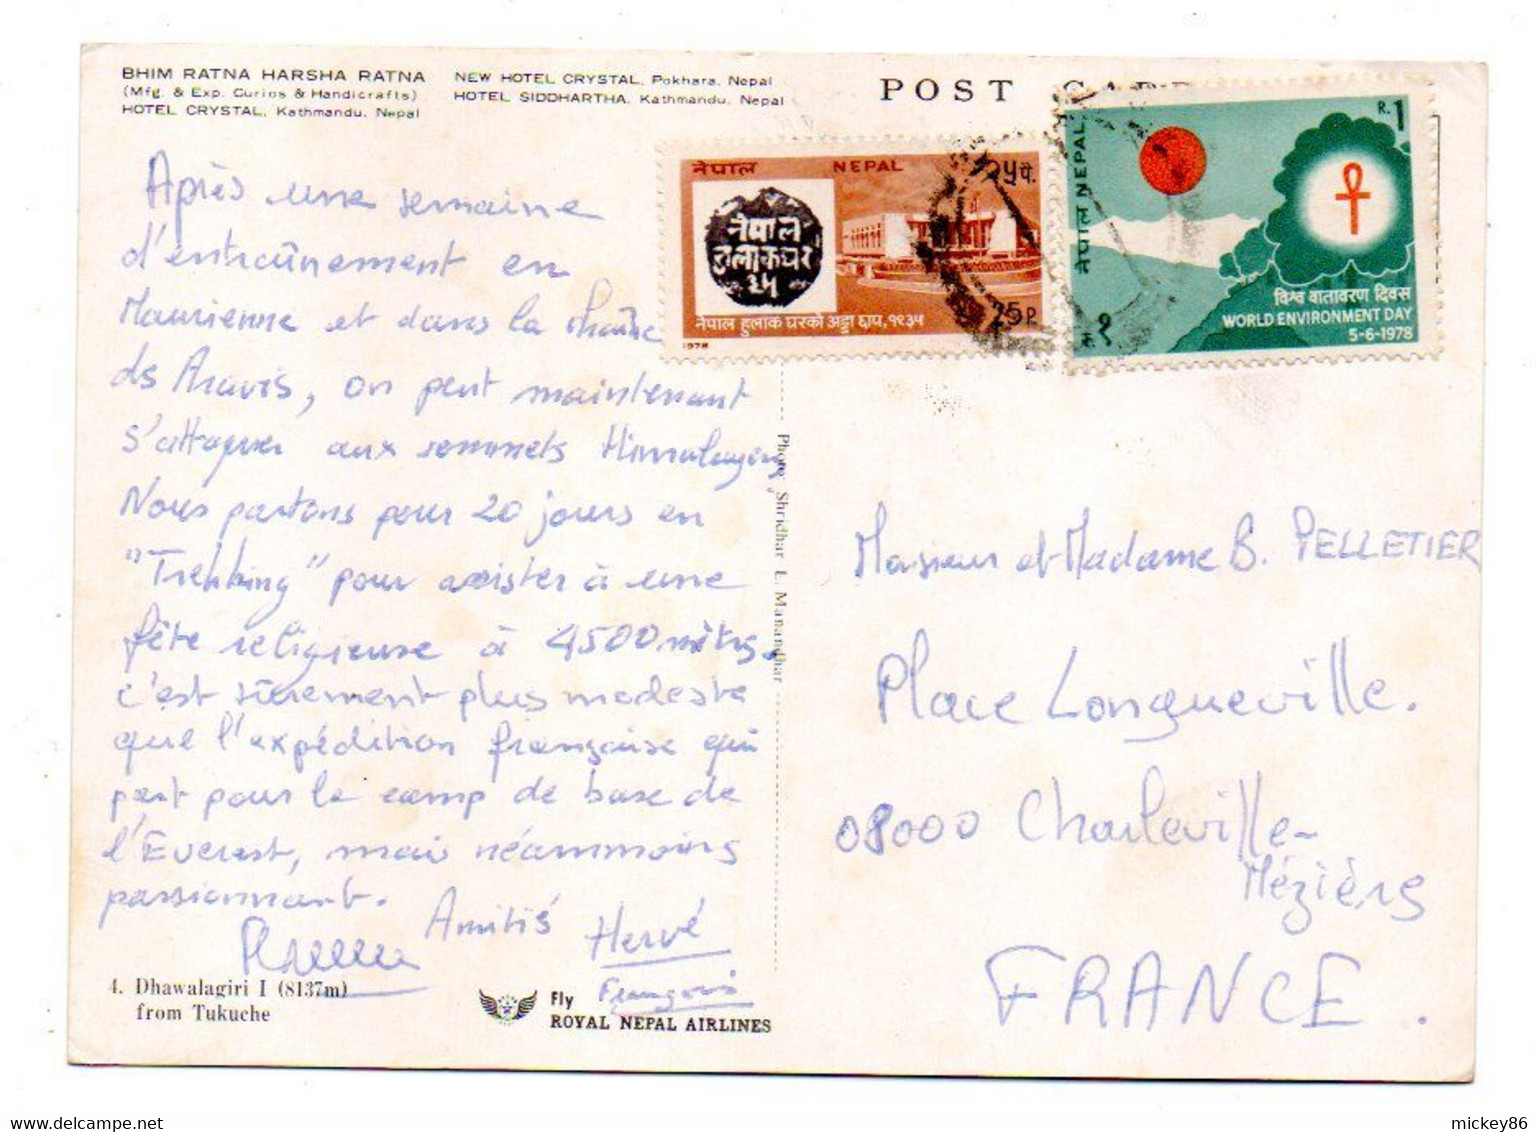 BHIM RATNA HARSHA RATNA
(Mfg. & Exp. Curios & Handicrafts)
HOTEL CRYSTAL, Kathmandu, Nepal
NEW HOTEL CRYSTAL, Pokhara, Nepal
HOTEL SIDDHARTHA, Kathmandu, Nepal
POST
नेपाल NEPAL २५ पै.
नेपाल
हुलाकघर
३५
25 P.
नेपाल हुलाक घरको अड्डा छाप, १९३५
1978
नेपाल NEPAL
R. 1
रू १
विश्व वातावरण दिवस
WORLD ENVIRONMENT DAY
5-6-1978
Après une semaine
d'entraînement en
Maurienne et dans la chaîne
des Aravis, on peut maintenant
s'attaquer aux sommets Himalayens.
Nous partons pour 20 jours en
"Trekking" pour assister à une
fête religieuse à 4500 mètres.
c'est sûrement plus modeste
que l'expédition française qui
part pour le camp de base de
l'Everest, mais néammoins
passionnant.
Amitiés
Hervé
François
4. Dhawalagiri I (8137m)
from Tukuche
Fly
ROYAL NEPAL AIRLINES
Photo: Shridhar L. Manandhar
Monsieur et Madame B. PELLETIER
Place Longueville.
08000 Charleville-
Mézières
FRANCE.
mickey86